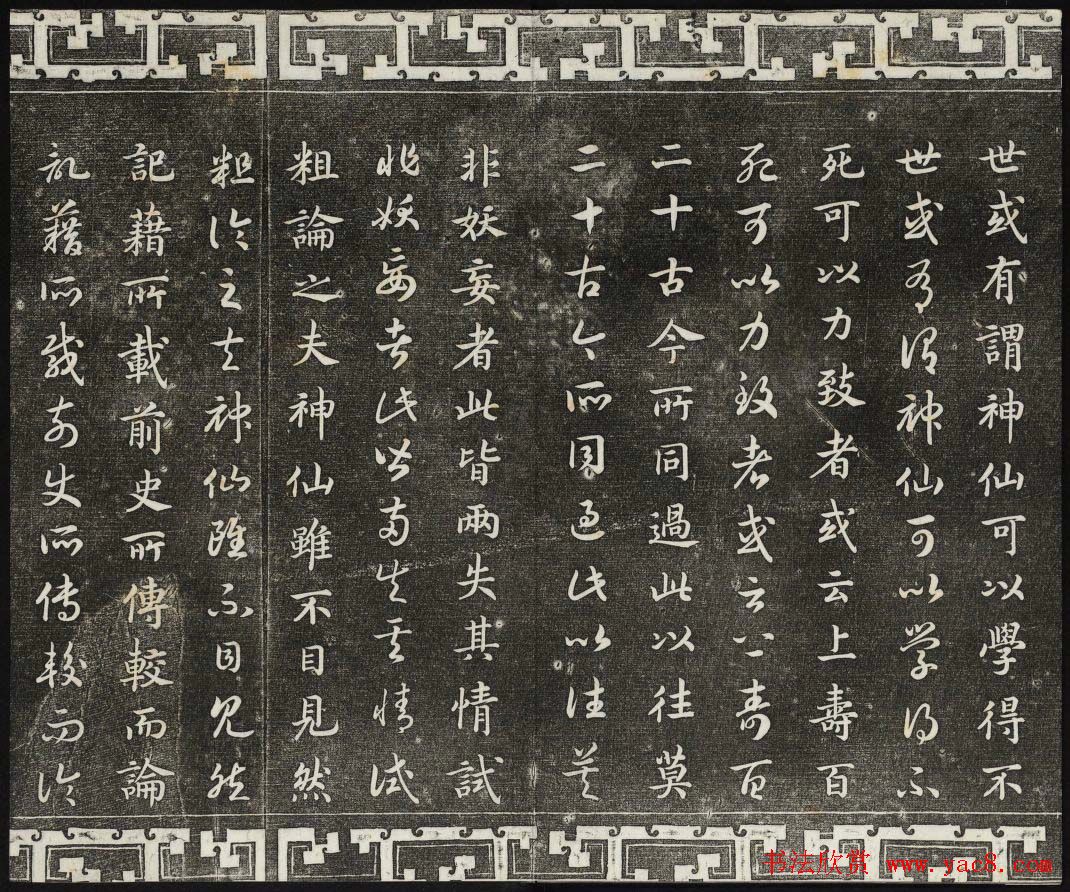 世或有謂神仙可以學得不
世或有謂神仙可以學得不
死可以力致者或云上壽百
死可以力致者或云上壽百
二十古今所同過此以往莫
二十古今所同過此以往莫
非妖妄者此皆兩失其情試
非妖妄者此皆兩失其情試
粗論之夫神仙雖不目見然
粗論之夫神仙雖不目見然
記藉所載前史所傳較而論
記藉所載前史所傳較而論
书法欣赏 www.yac8.com